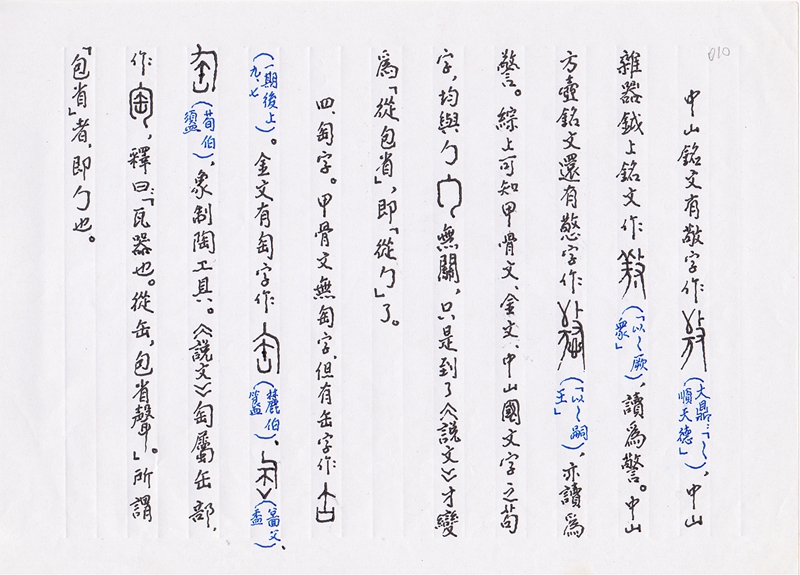 010
中山銘文有敬字作（大鼎：「〜順天德」），中山
雜器鉞上銘文作（「以〜厥衆」），讀爲警。中山
方壺銘文還有憼字作（「以〜嗣王」），亦讀爲
警。綜上可知甲骨文、金文、中山國文字之茍
字，均與勹無關，只是到了《說文》才變
爲「從包省」，即「從勹」了。
四、匋字。甲骨文無匋字，但有缶字作
（一期後上九.七）。金文有匋字作（麓伯簋）、（筍父盉）、
（筍伯盨），象制陶工具。《說文》匋屬缶部，
作，釋曰：「瓦器也。從缶，包省聲」。所謂
「包省」者，即勹也。